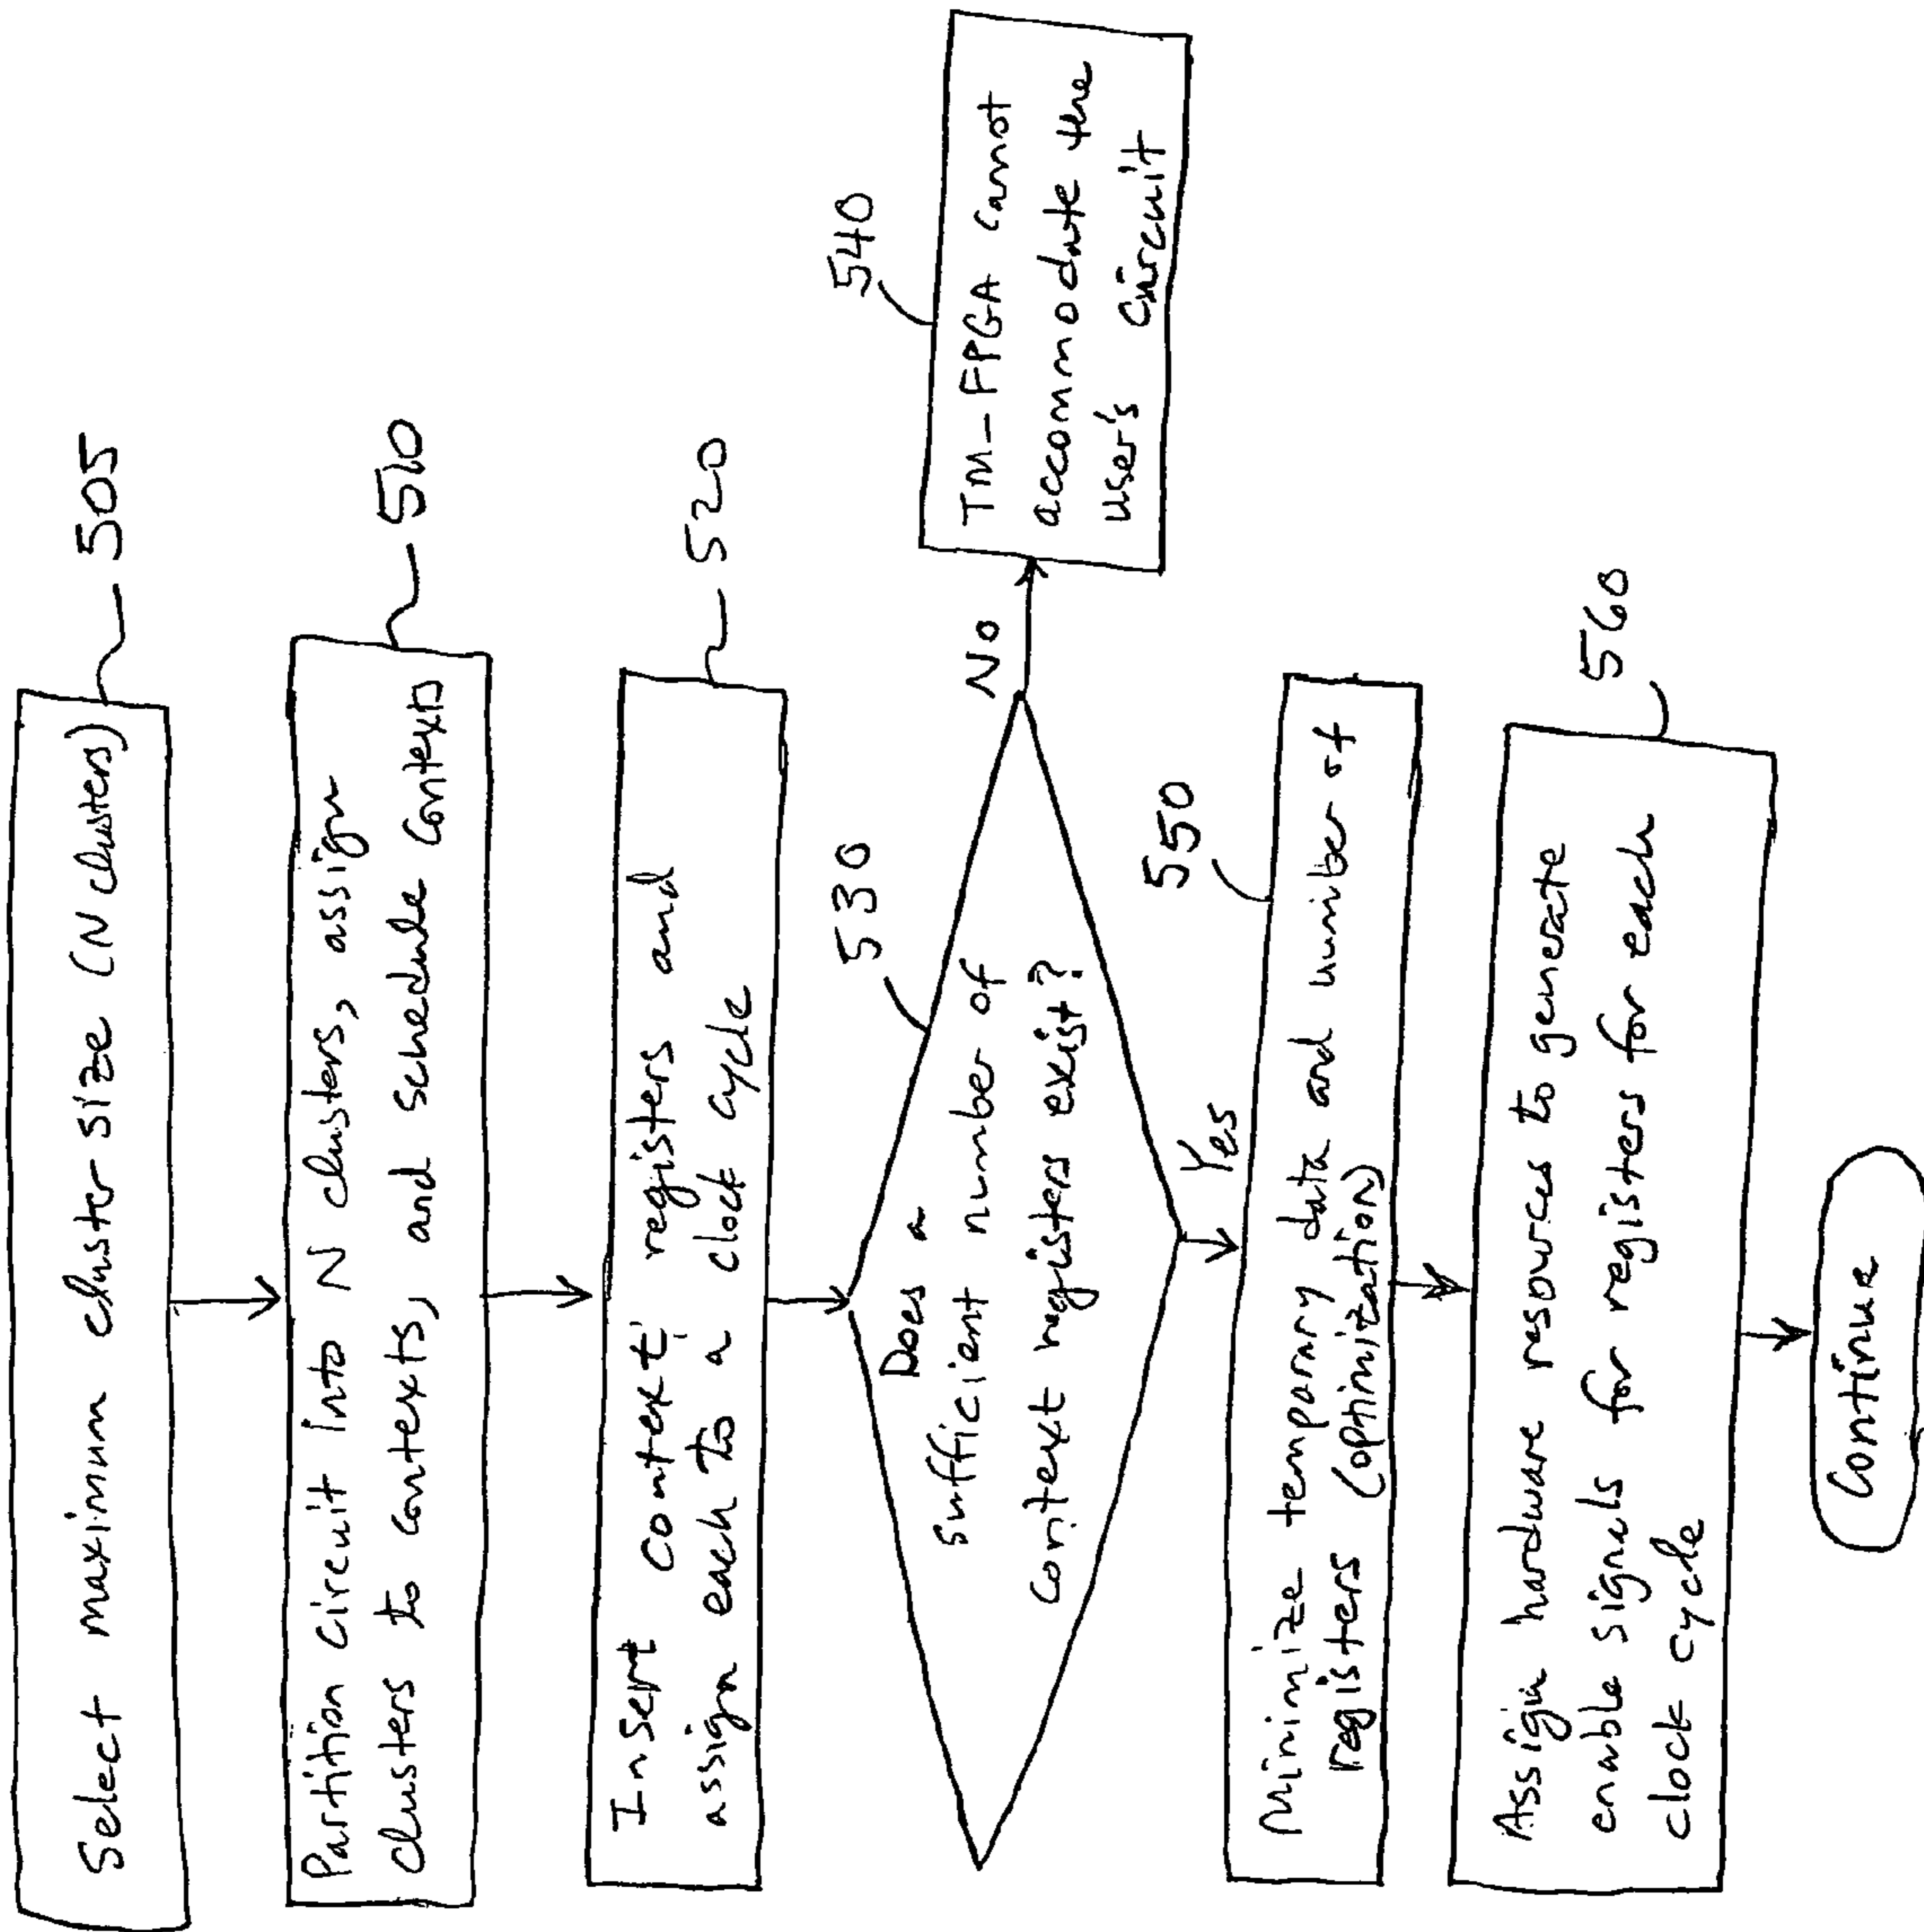 Select maximum cluster size (N clusters)
505
Partition Circuit Into N clusters, assign
clusters to contexts, and schedule contexts
510
Insert context registers and
assign each to a clock cycle
520
Does a
sufficient number of
context registers exist?
530
No
TM-FPGA cannot
accommodate the
user's circuit
540
Yes
Minimize temporary data and number of
registers (optimization)
550
Assign hardware resources to generate
enable signals for registers for each
clock cycle
560
Continue